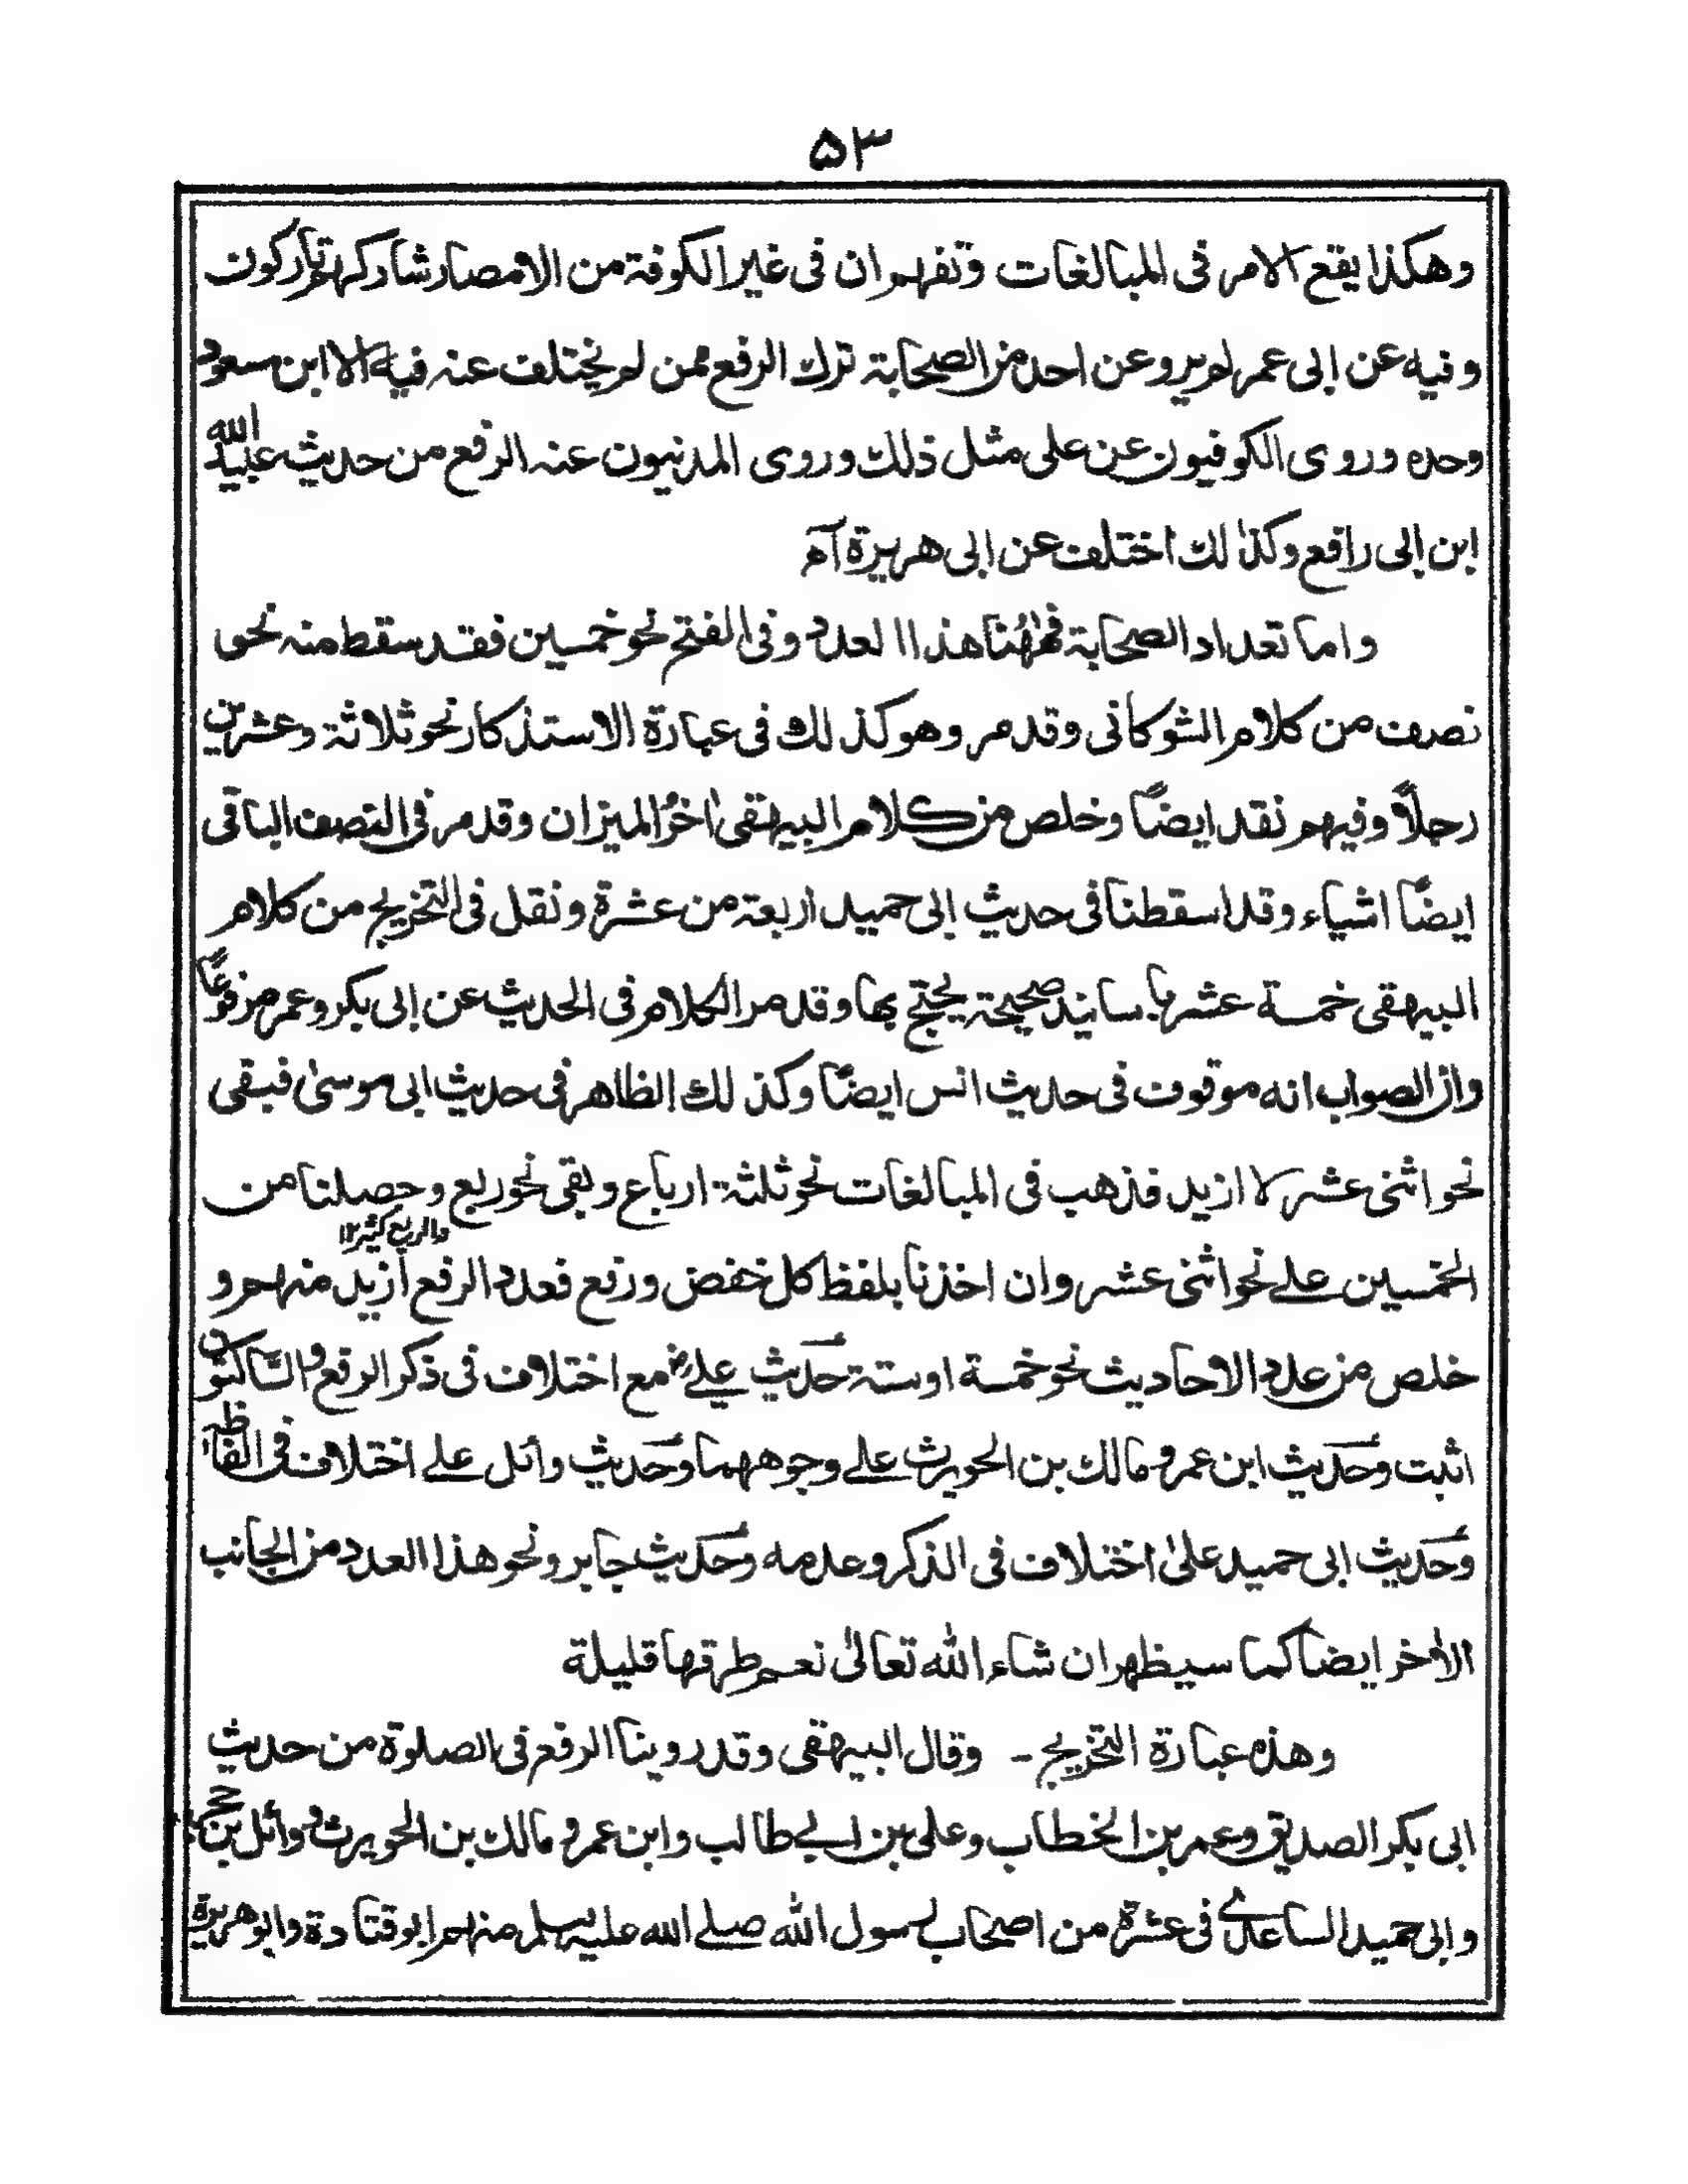 ۵۳
وهكذا يقع الامر فى المبالغات وتفهم ان فى غير الكوفة من الامصار شاركهم تاركون
وفيه عن ابى عمر لم يرو عن احد من الصحابة ترك الرفع ممن لم يختلف عنه فيه الا ابن مسعود
وحده وروى الكوفيون عن على مثل ذلك وروى المدنيون عنه الرفع من حديث عبيد الله
ابن ابى رافع وكذلك اختلف عن ابى هريرة آه
واما تعداد الصحابة فههنا هذا العدد وفى الفتح نحو خمسين فقد سقط منه نحو
نصف من كلام الشوكانى وقد مر وهو كذلك فى عبارة الاستذكار نحو ثلاثة وعشرين
رجلاً وفيهم نقد ايضاً وخلص من كلام البيهقى اخر الميزان وقد مر فى النصف الباقى
ايضاً اشياء وقد اسقطنا فى حديث ابى حميد اربعة من عشرة ونقل فى التخريج من كلام
البيهقى خمسة عشر باسانيد صحيحة يحتج بها وقد مر الكلام فى الحديث عن ابى بكر وعمر مرفوعاً
وان الصواب انه موقوف فى حديث انس ايضاً وكذلك الظاهر فى حديث ابى موسىٰ فبقى
نحو اثنى عشر لا ازيد فذهب فى المبالغات نحو ثلثة ارباع وبقى نحو ربع وحصلنا من
والربع كثير ١٢
الخمسين على نحو اثنى عشر وان اخذنا بلفظ كل خفض ورفع فعدد الرفع ازيد منهم و
خلص من عدد الاحاديث نحو خمسة او ستة حديث علىؓ مع اختلاف فى ذكر الرفع والساكتون
اثبت وحديث ابن عمر و مالك بن الحويرث على وجوههما وحديث وائل على اختلاف فى الفاظه
وحديث ابى حميد علىٰ اختلاف فى الذكر وعدمه وحديث جابر ونحو هذا العدد من الجانب
الاٰخر ايضا كما سيظهر ان شاء الله تعالىٰ نعم طرقها قليلة
وهذه عبارة التخريج - وقال البيهقى وقد روينا الرفع فى الصلوة من حديث
ابى بكر الصديق وعمر بن الخطاب وعلى بن ابى طالب وابن عمر و مالك بن الحويرث و وائل بن حجر
وابى حميد الساعدى فى عشرة من اصحاب رسول الله صلى الله عليه وسلم منهم ابو قتادة وابو هريرة